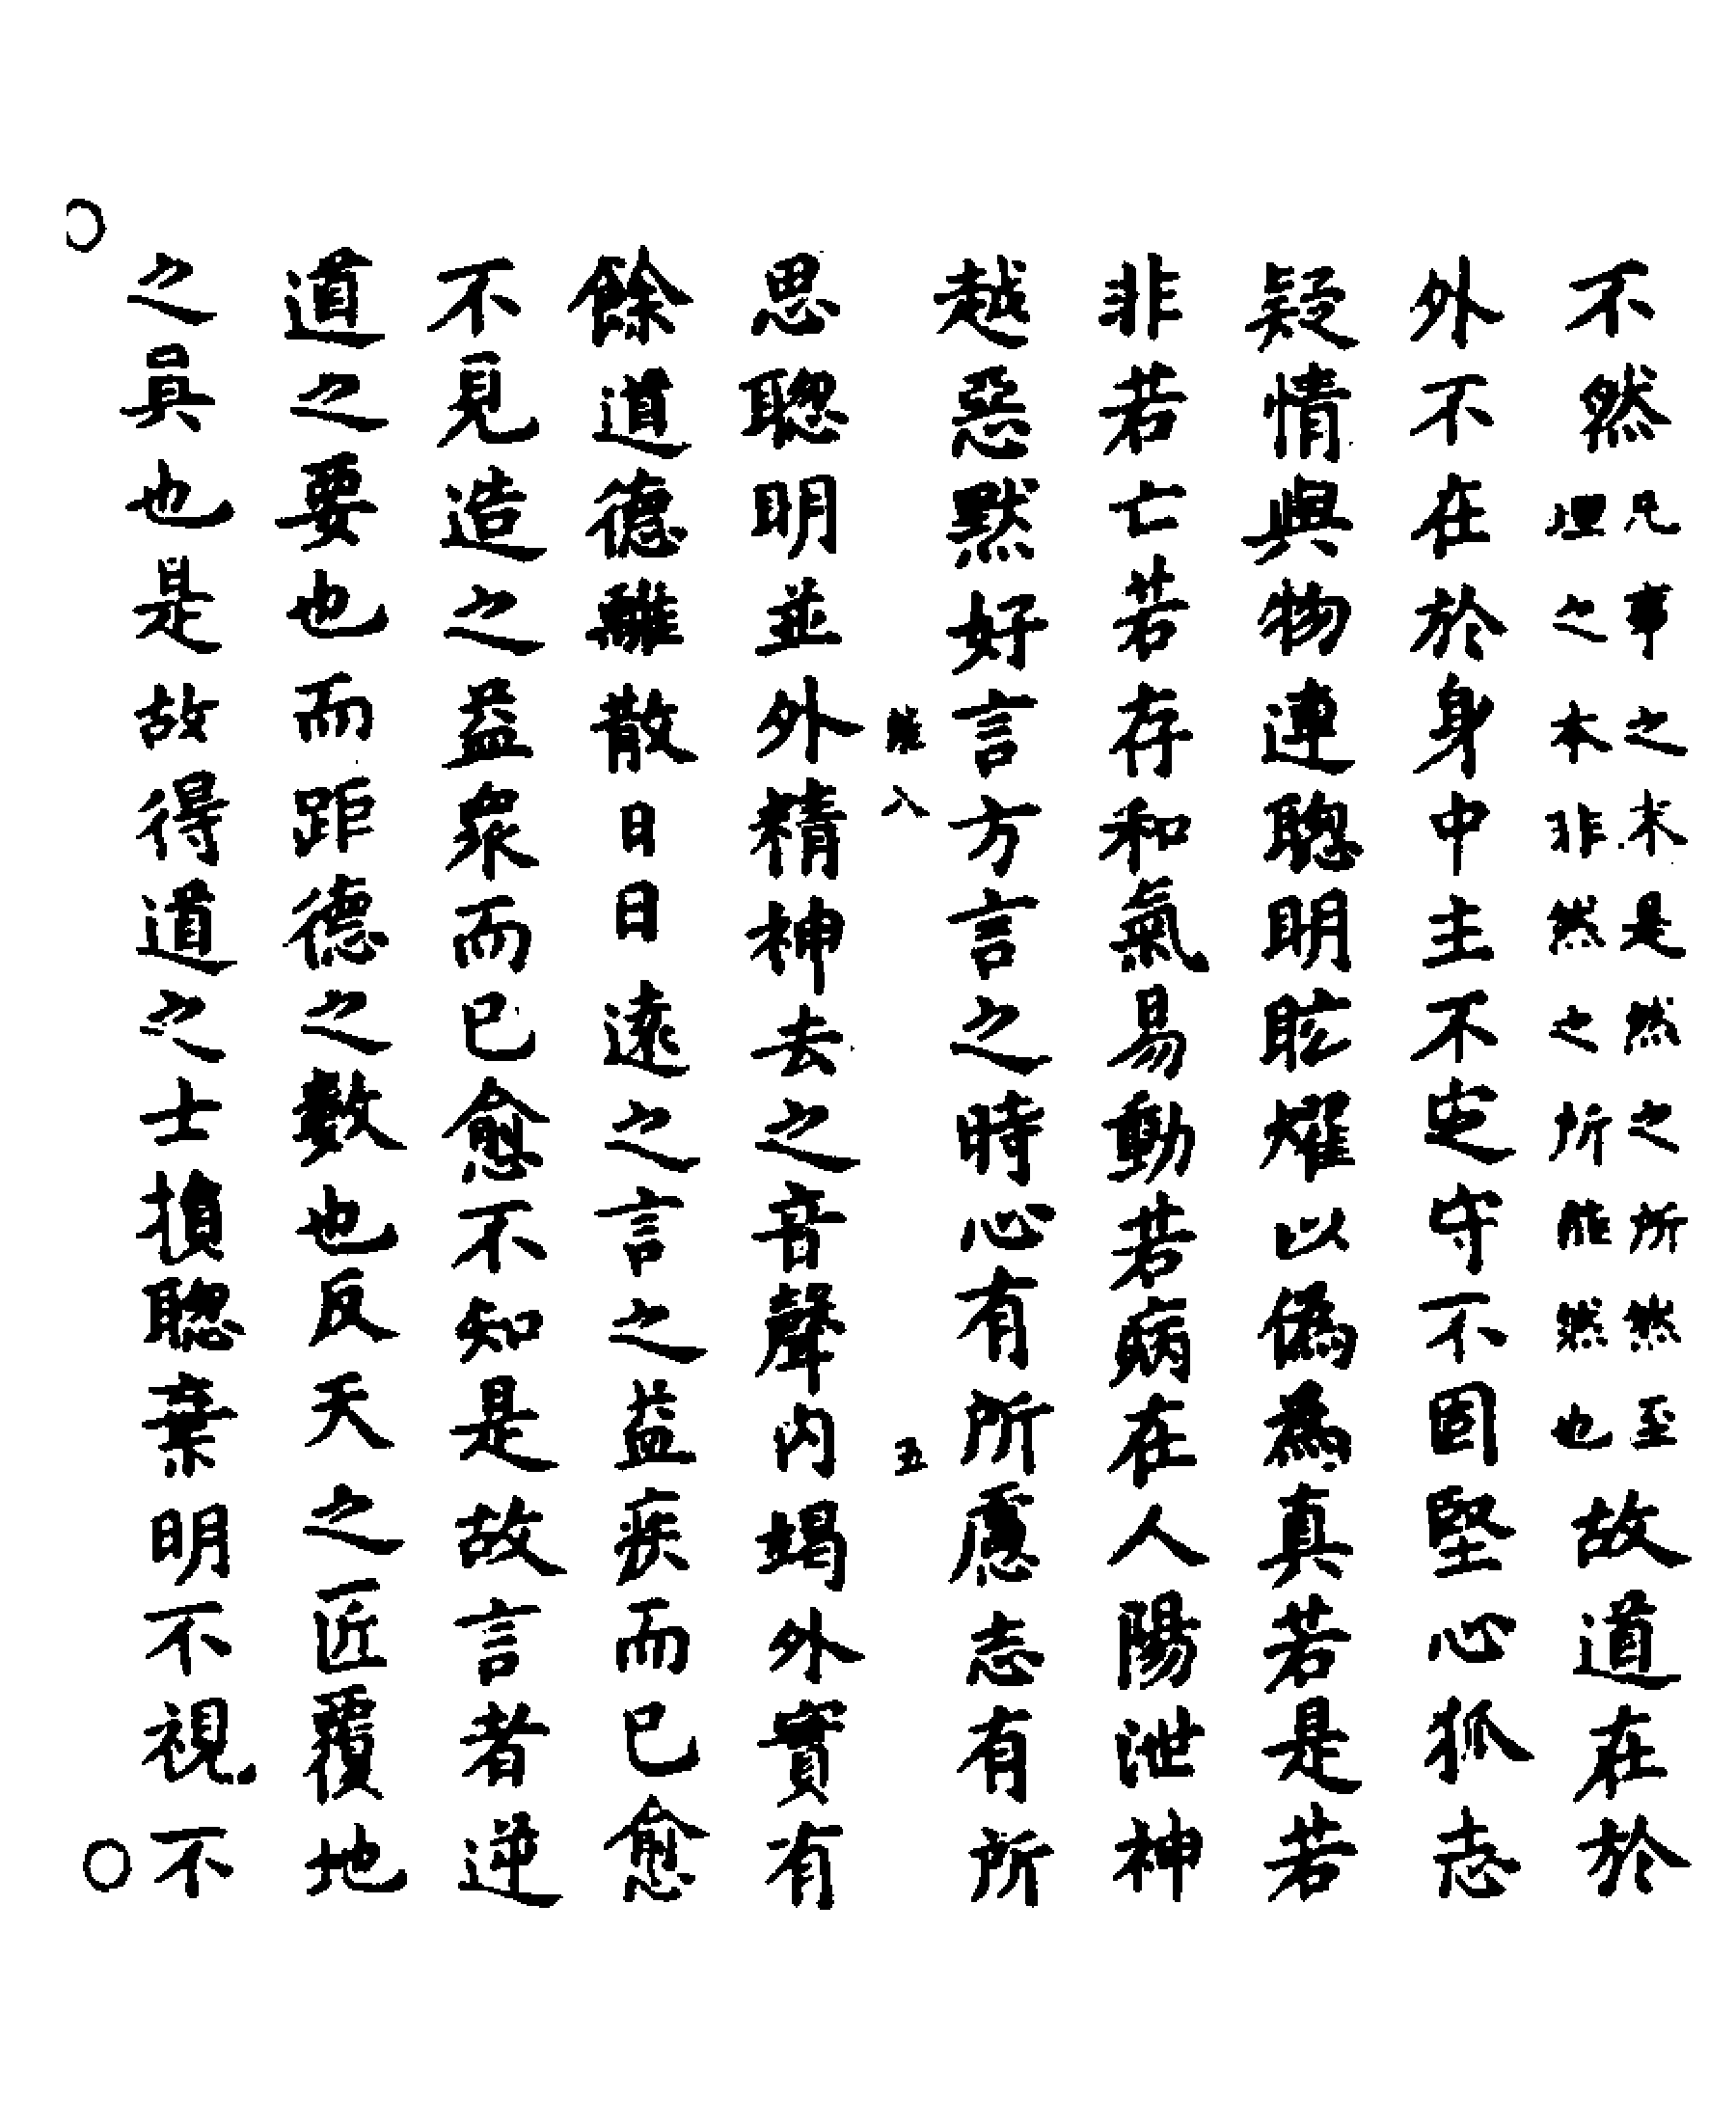 不然凡事之末是然之所然至理之本非然之所能然也故道在於
外不在於身中主不定守不固堅心狐志
疑情與物連聦明眩燿以偽為真若是若
非若亡若存和氣易動若病在人陽泄神
越惡默好言方言之時心有所慮志有所
八 五
思聦明並外精神去之音聲内竭外實有
餘道德離散日日遠之言之益疾而已愈
不見造之益衆而已愈不知是故言者逆
道之要也而距德之數也反天之匠覆地
之真也是故得道之士損聦棄明不視不